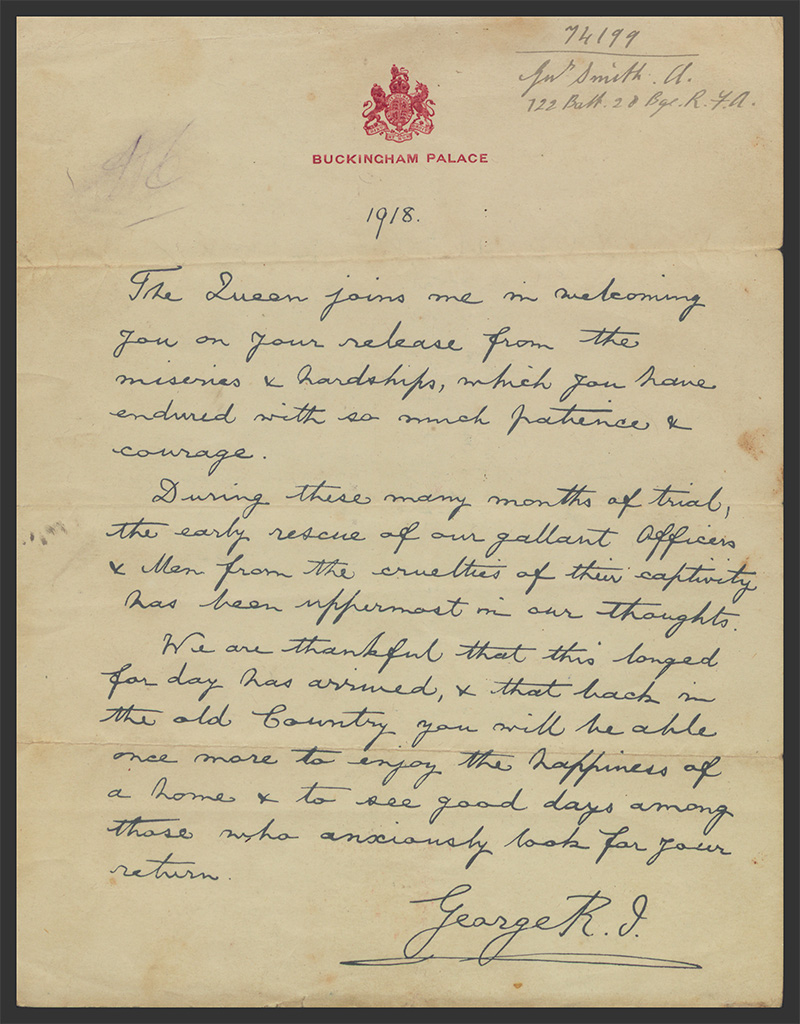 74199
Gnr Smith. A.
122 Batt. 28 Bge. R.F.A.
BUCKINGHAM PALACE
1918.
The Queen joins me in welcoming
you on your release from the
miseries & hardships, which you have
endured with so much patience &
courage.
During these many months of trial,
the early rescue of our gallant Officers
& Men from the cruelties of their captivity
has been uppermost in our thoughts.
We are thankful that this longed
for day has arrived, & that back in
the old Country you will be able
once more to enjoy the happiness of
a home & to see good days among
those who anxiously look for your
return.
George R. I.